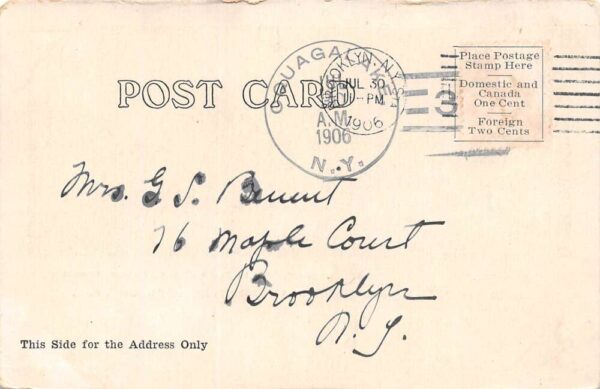 Place Postage
Stamp Here
Domestic and
Canada
One Cent
Foreign
Two Cents
POST CARD
BROOKLYN, N.Y.
JUL 30
1-PM
1906
A.M.
1906
N.Y.
3
Mrs. G. S. Bennett
76 Maple Court
Brooklyn
N. Y.
This Side for the Address Only